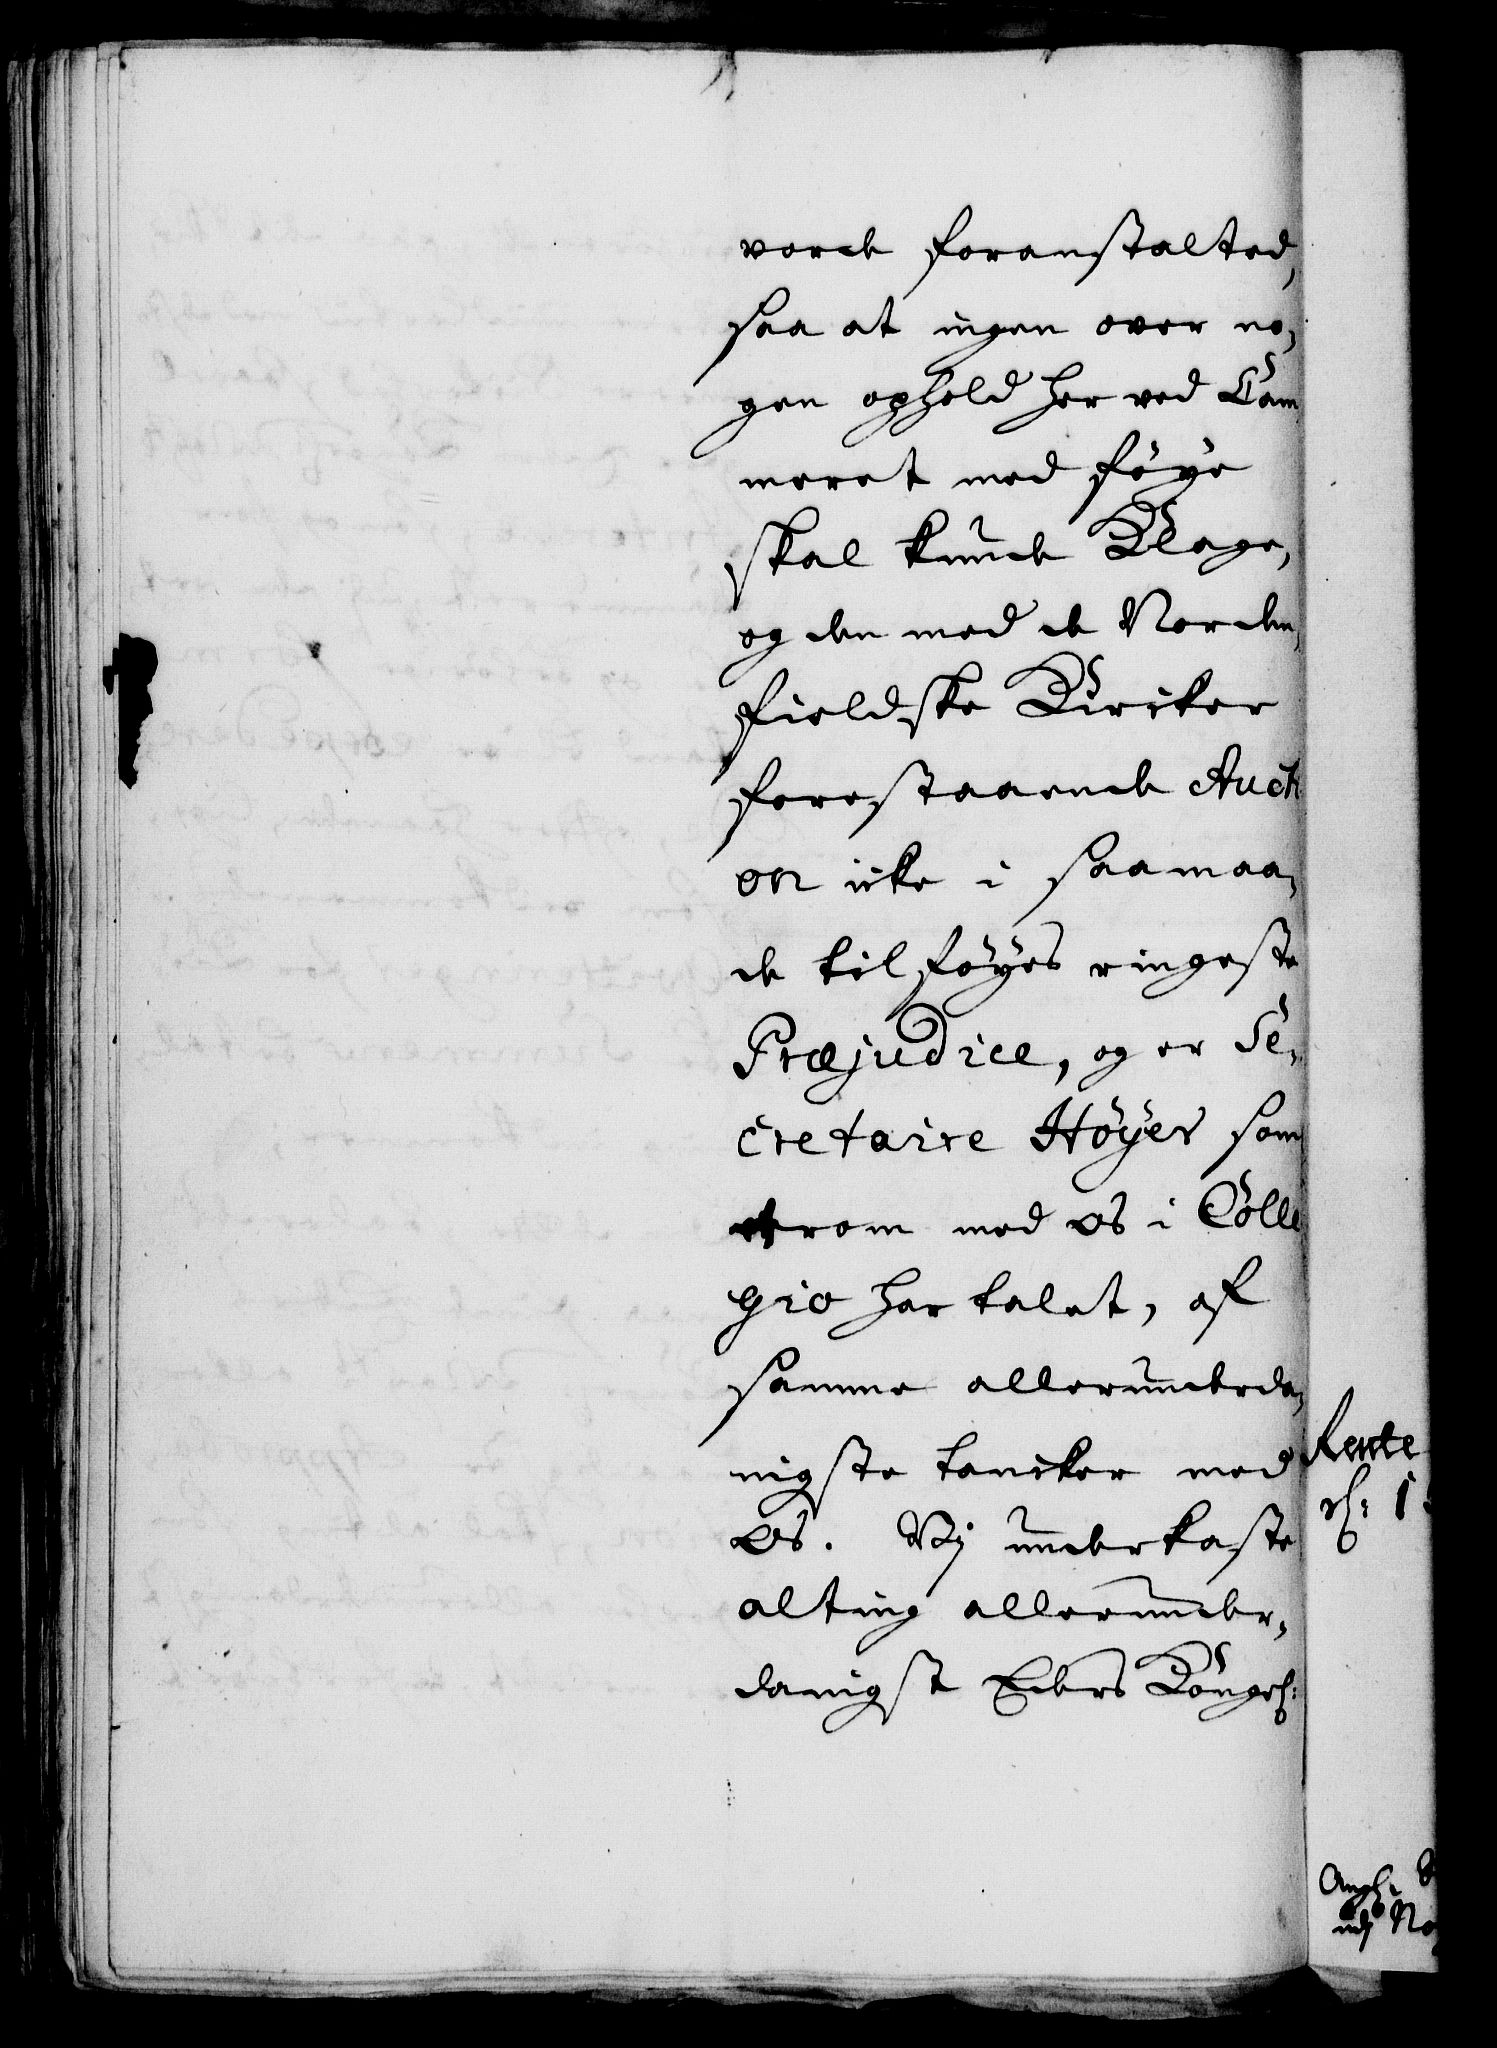 vorde foranstalted,
saa at ingen over no-
gen ophold her ved Cam
meret med føye
skal kunde Klage,
og den med de Norden-
fieldske Kircker
forestaaende Aucti
on icke i saamaa-
de tilføyes ringeste
Præjudice, og er Se-
cretaire Höyer som
herom med os i Colle
gio har talet, af
samme allerunderda-
nigste tancker med
Os. Vj underkaste
alting allerunder-
danigst Eders Kongel:
Rente
No